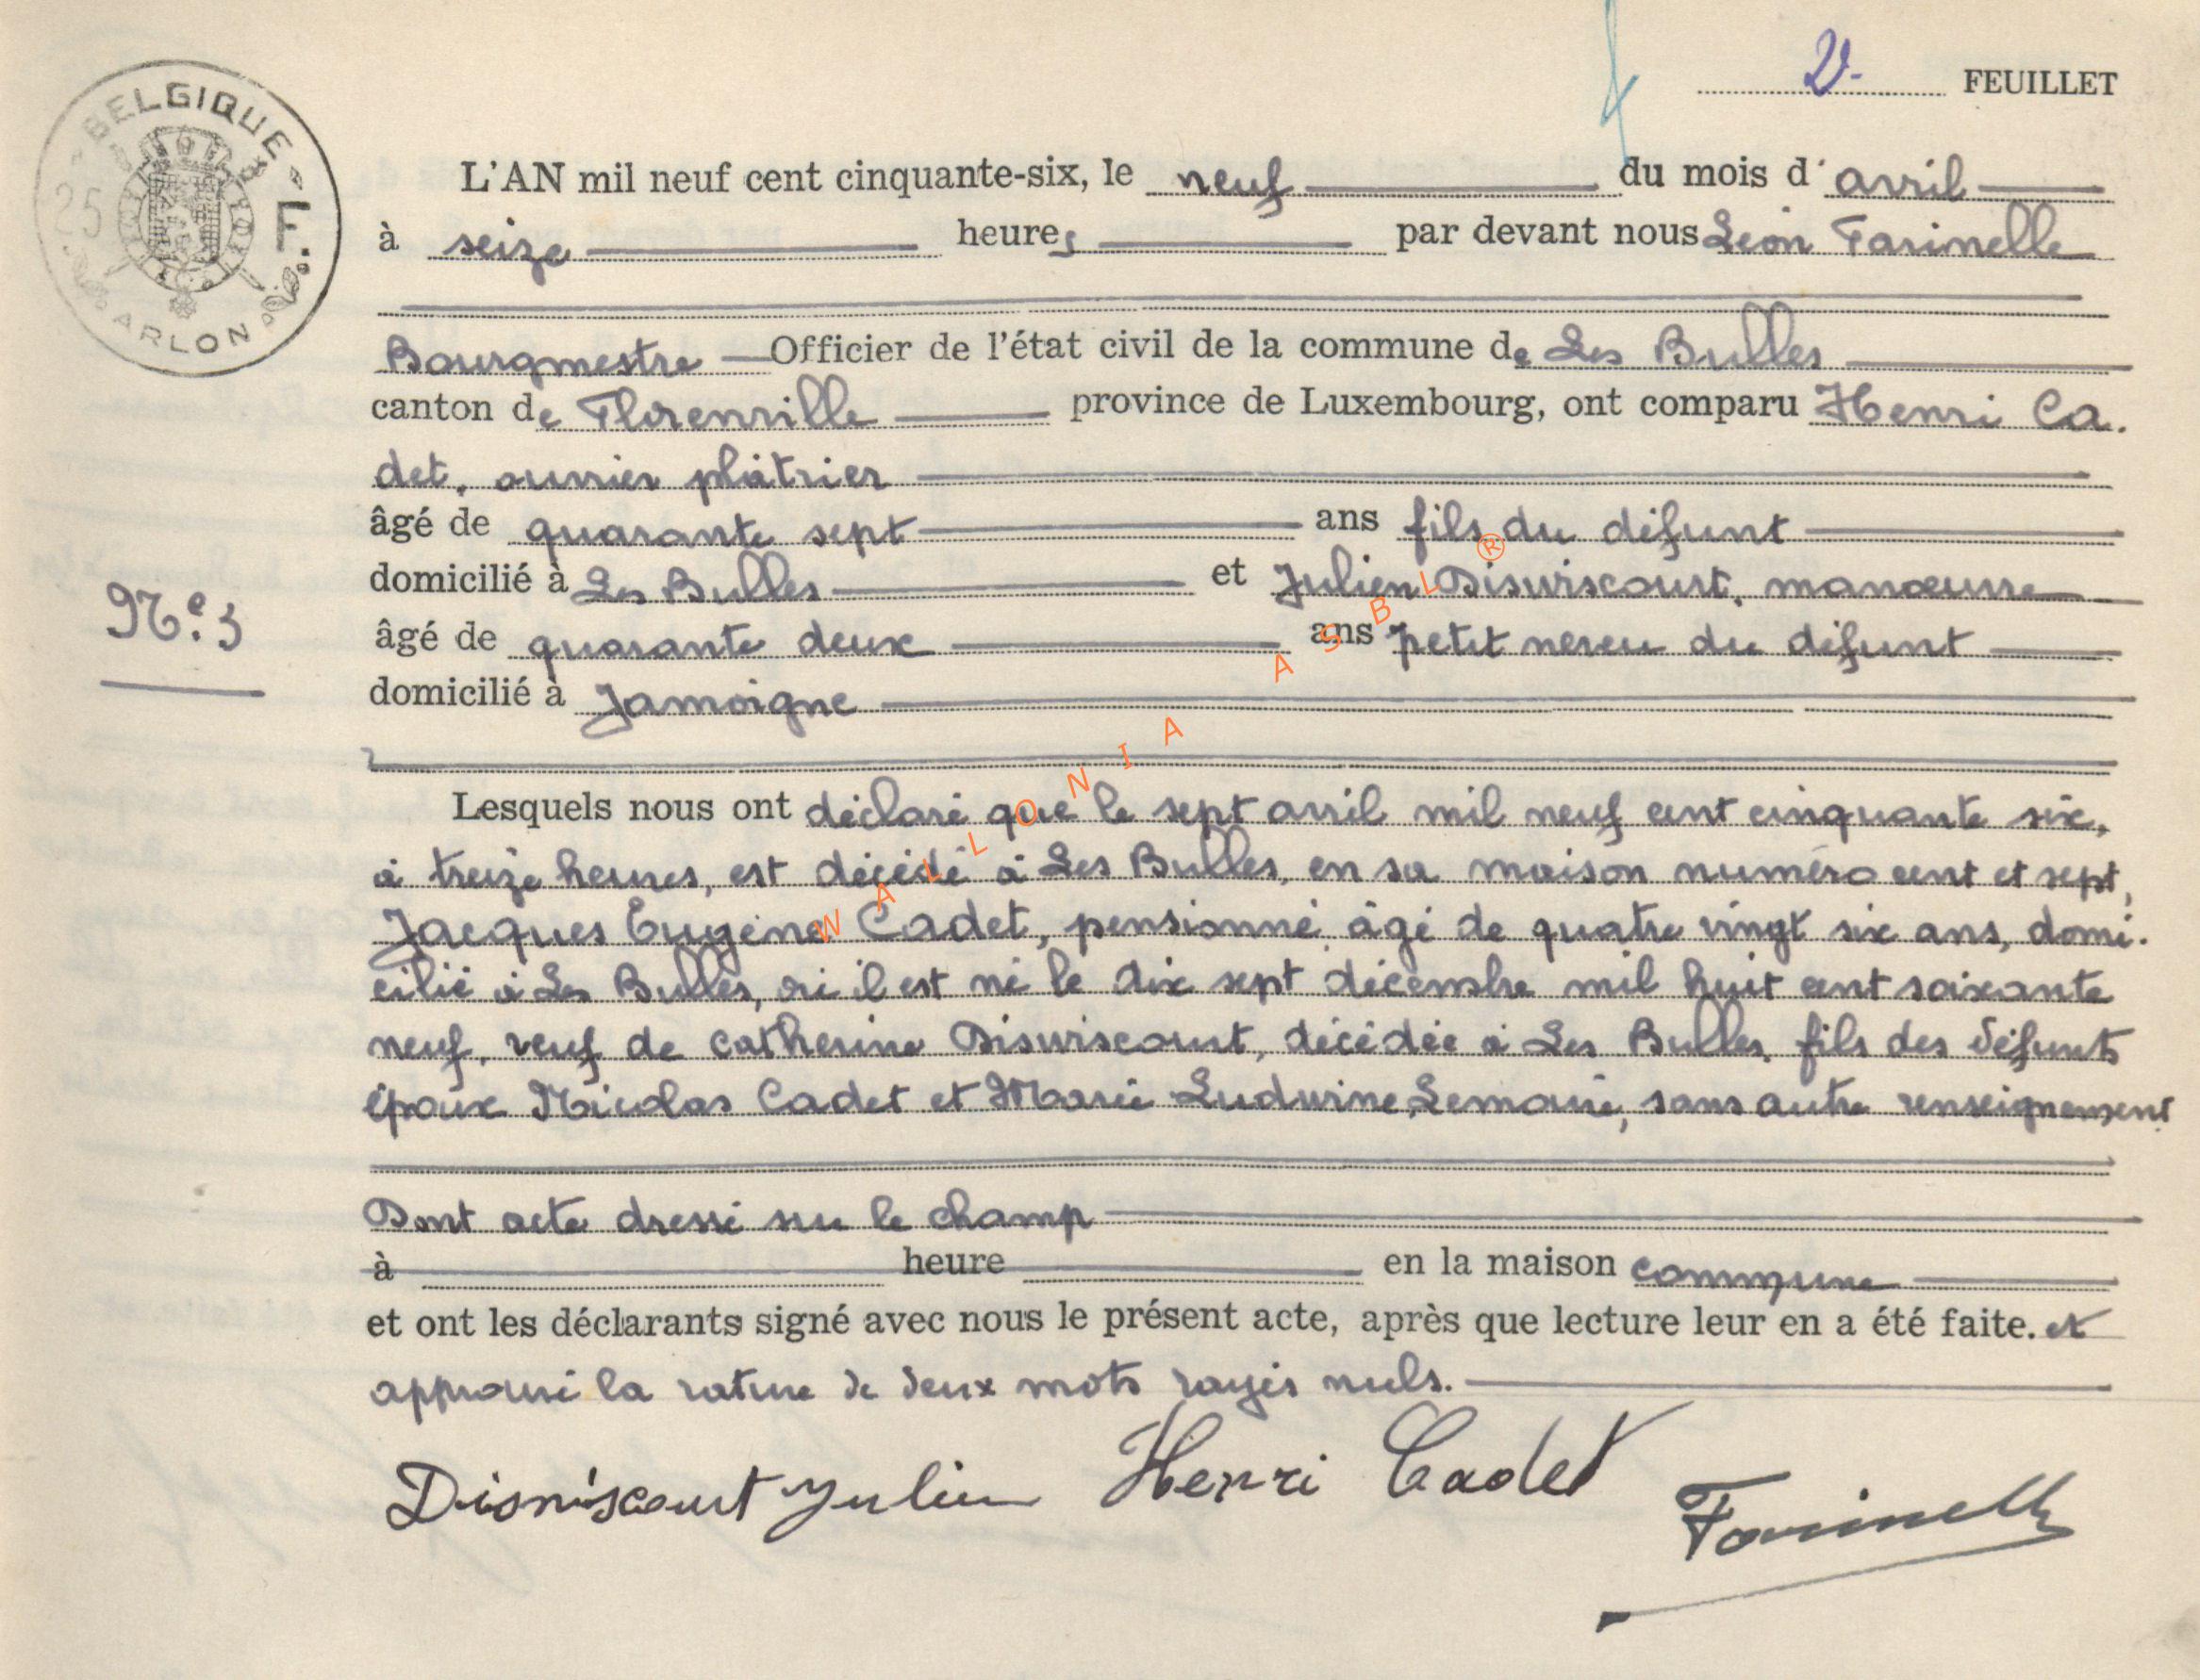 BELGIQUE
25 F.
ARLON
2. FEUILLET
L'AN mil neuf cent cinquante-six, le neuf du mois d'avril
à seize heures par devant nous Léon Farinelle
Bourgmestre Officier de l'état civil de la commune de Les Bulles
canton de Florenville province de Luxembourg, ont comparu Henri Ca-
det, ouvrier plâtrier
âgé de quarante sept ans fils du défunt
domicilié à Les Bulles et Julien Disviscourt, manœuvre
N°. 3
âgé de quarante deux ans petit neveu du défunt
domicilié à Jamoigne
Lesquels nous ont déclaré que le sept avril mil neuf cent cinquante six,
à treize heures, est décédé à Les Bulles, en sa maison numéro cent et sept,
Jacques Eugène Cadet, pensionné, âgé de quatre vingt six ans, domi-
cilié à Les Bulles, où il est né le dix sept décembre mil huit cent soixante
neuf, veuf de Catherine Disviscourt, décédée à Les Bulles, fils des défunts
époux Nicolas Cadet et Marie Ludwine Lemaire, sans autre renseignement
Dont acte dressé sur le champ
à heure en la maison commune
et ont les déclarants signé avec nous le présent acte, après que lecture leur en a été faite. et
approuvé la rature de deux mots rayés nuls.
Disviscourt Julien Henri Cadet Farinelle
WALLONIA ASBL ®